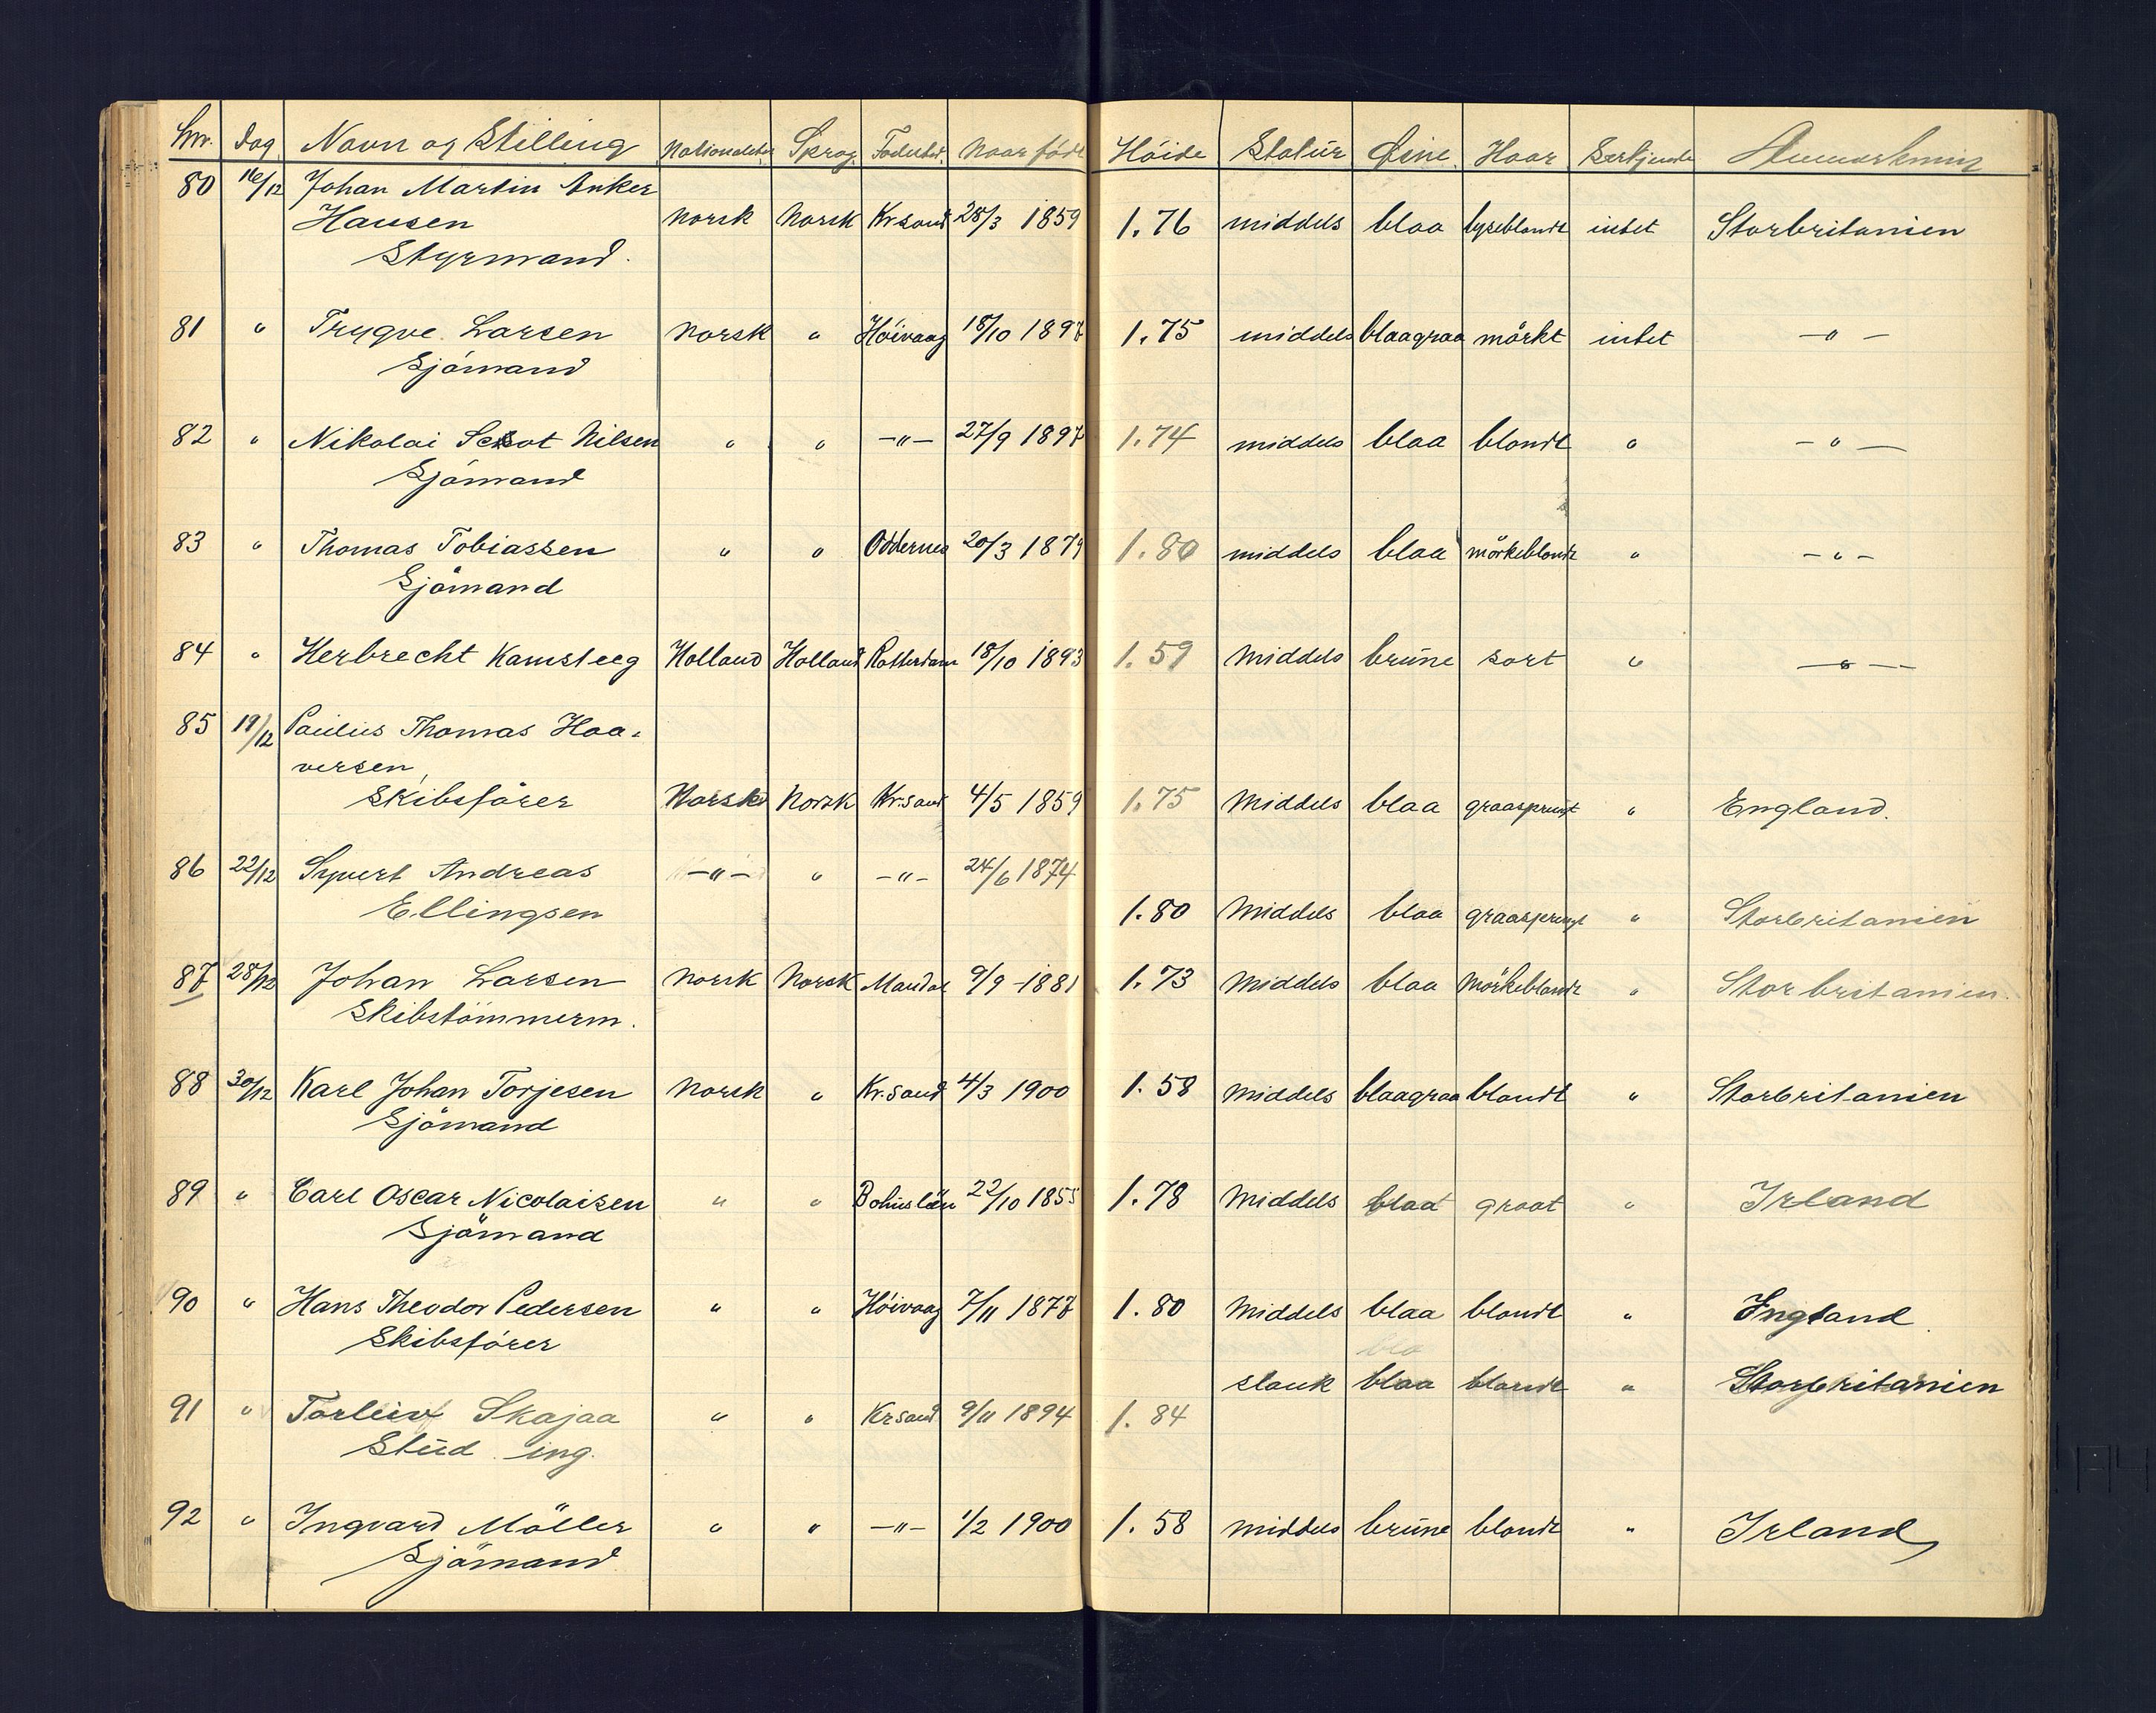 Nr. Dag Navn og Stilling Nationalitet Sprog Födested. Naar född Höide Statur Öine Haar Særkjende Anmærkning
80 16/12 Johan Martin Anker
Hansen Norsk Norsk Kr.sand 28/3 1859 1.76 middels blaa lyseblondt intet Storbritanien
Styrmand.
81 " Trygve Larsen Norsk " Höivaag 18/10 1897 1.75 middels blaagraa mörkt intet -"-
Sjömand
82 " Nikolai Nilsen " " -"- 27/9 1897 1.74 middels blaa blondt " -"-
Sjömand
83 " Thomas Tobiassen " " Oddernes 20/3 1879 1.80 middels blaa mörkeblondt " -"-
Sjömand
84 " Herbrecht Kamsteeg Holland Holland Rotterdam 18/10 1893 1.59 Middels brune sort " -"-
85 19/12 Paulus Thomas Haa-
versen,
Skibsförer Norsk Norsk Kr.sand 4/5 1859 1.75 Middels blaa graasprengt " England.
86 22/12 Syvert Andreas -"- " -"- 24/6 1874
Ellingsen 1.80 Middels blaa graasprengt " Storbritanien
87 28/12 Johan Larsen Norsk Norsk Mandal 9/9-1881 1.73 Middels blaa Mörkeblondt " Storbritanien.
Skibstömmerm.
88 30/12 Karl Johan Torjesen Norsk " Kr.sand 4/3 1900 1.58 Middels blaagraa blondt " Storbritanien
Sjömand
89 " Carl Oscar Nicolaisen " " Bohuslän 22/10 1855 1.78 Middels blaa graat " Irland
Sjömand
90 " Hans Theodor Pedersen " " Höivaag 7/11 1877 1.80 Middels blaa blondt " England
Skibsförer
slank blaa blondt " Storbritanien
91 " Torleiv Skajaa " " Krsand 9/11 1894 1.84
Stud. ing.
92 " Ingvard Möller " " -"- 1/2 1900 1.58 middels brune blondt " Irland
Sjömand